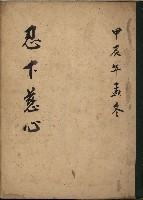 甲辰年孟冬
忍下慈心